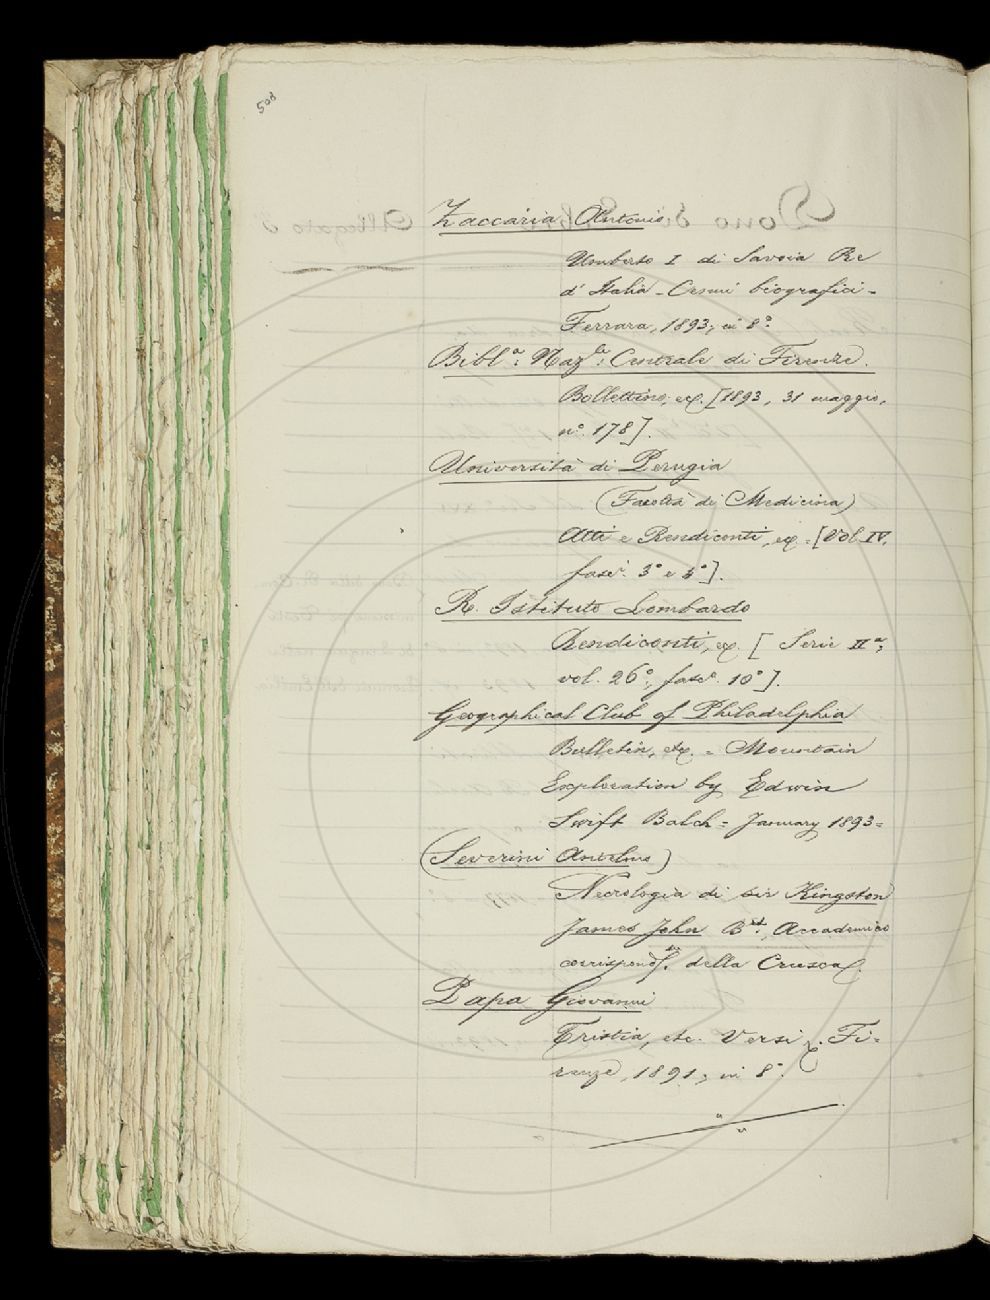 508
Zaccaria Antonio
Umberto I di Savoia Re
d' Italia - Cenni biografici -
Ferrara, 1893, in 8.º
Bibl.ª Naz.le Centrale di Firenze.
Bollettino, ec. [1893, 31 maggio,
nº. 178].
Università di Perugia
(Facoltà di Medicina)
Atti e Rendiconti, ec. - [Vol. IV.
fasc.i 3º e 4º].
R. Istituto Lombardo
Rendiconti, ec. [ Serie IIª,
vol. 26º, fasc.º 10º].
Geographical Club of Philadelphia
Bulletin, etc. - Mountain
Exploration by Edwin
Swift Balch = January 1893 =
(Severini Antelmo)
Necrologia di sir Kingston
James John B.et, Accademico
corrispond.te della Crusca.
Papa Giovanni
Tristia, etc. Versi. Fi=
renze, 1891, in 8º.